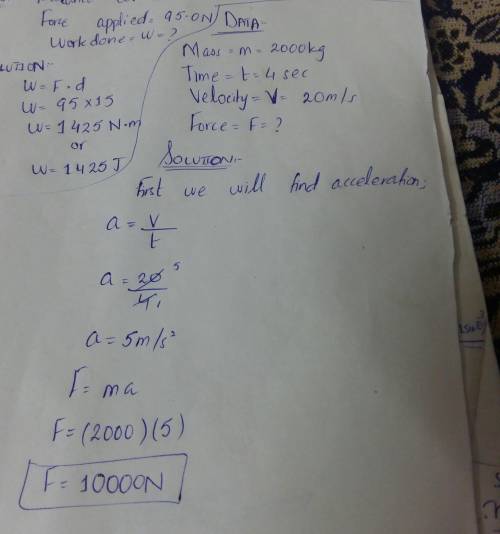 Force applied = 95.0N
Work done = W = ?
LUTION:-
W = F . d
W = 95 x 15
W = 1425 N.m
or
W = 1425 J
DATA:-
Mass = m = 2000kg
Time = t = 4 sec
Velocity = V = 20m/s
Force = F = ?
SOLUTION:-
First we will find acceleration;
a = V
t
a = 20 5
4 1
a = 5m/s²
F = ma
F = (2000)(5)
F = 10000N